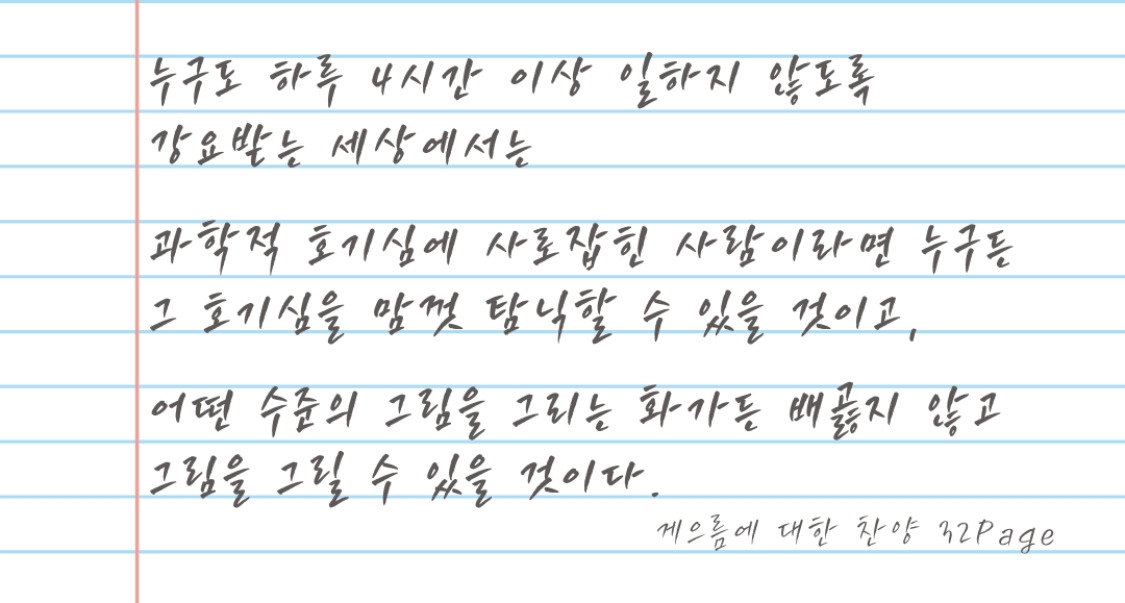 누구도 하루 4시간 이상 일하지 않도록
강요받는 세상에서는
과학적 호기심에 사로잡힌 사람이라면 누구든
그 호기심을 맘껏 탐닉할 수 있을 것이고,
어떤 수준의 그림을 그리는 화가든 배곯지 않고
그림을 그릴 수 있을 것이다.
게으름에 대한 찬양 32Page